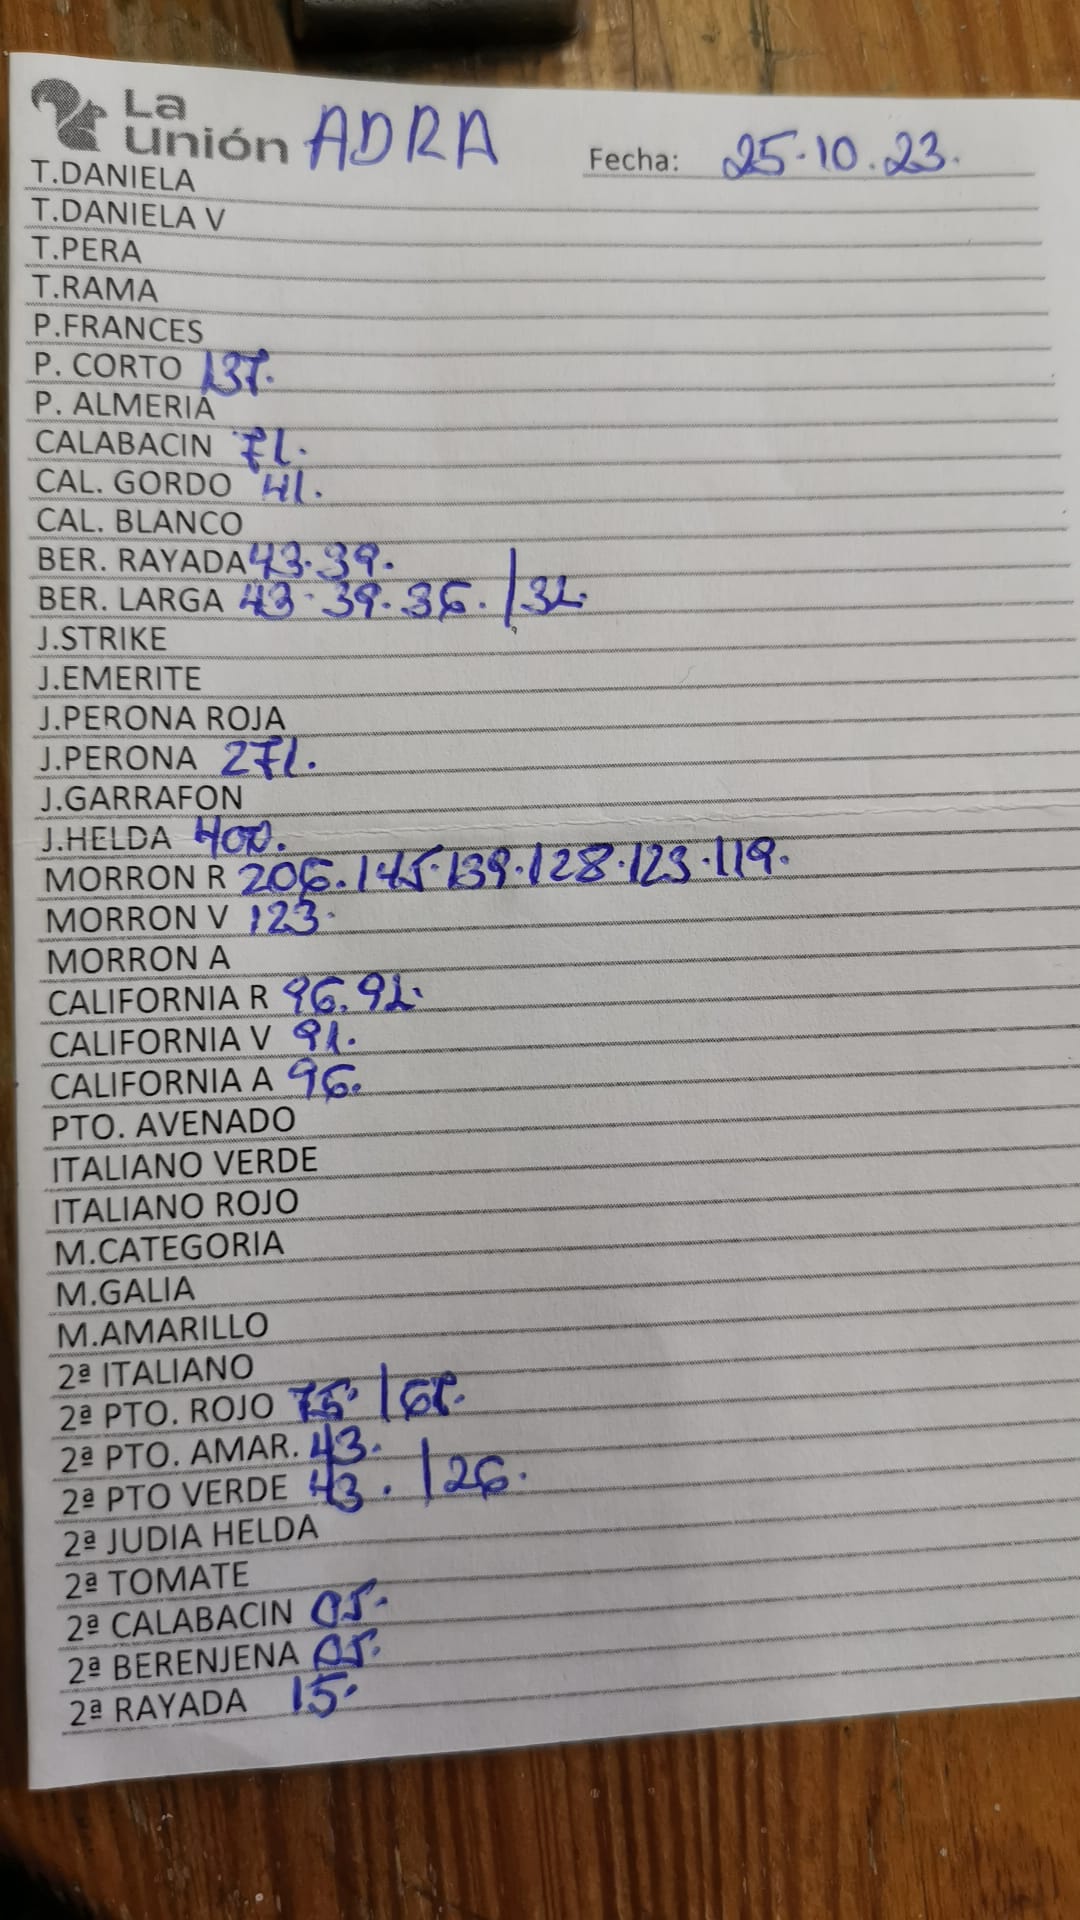 La Unión ADRA Fecha: 25.10.23.
T.DANIELA
T.DANIELA V
T.PERA
T.RAMA
P.FRANCES
P. CORTO 137.
P. ALMERIA
CALABACIN 71.
CAL. GORDO 41.
CAL. BLANCO
BER. RAYADA 43.39.
BER. LARGA 43.39.36. /32.
J.STRIKE
J.EMERITE
J.PERONA ROJA
J.PERONA 271.
J.GARRAFON
J.HELDA 400.
MORRON R 206.145.139.128.123.119.
MORRON V 123.
MORRON A
CALIFORNIA R 96.92.
CALIFORNIA V 91.
CALIFORNIA A 96.
PTO. AVENADO
ITALIANO VERDE
ITALIANO ROJO
M.CATEGORIA
M.GALIA
M.AMARILLO
2ª ITALIANO
2ª PTO. ROJO 75. /
2ª PTO. AMAR. 43.
2ª PTO VERDE 43. /26.
2ª JUDIA HELDA
2ª TOMATE
2ª CALABACIN 05.
2ª BERENJENA 05.
2ª RAYADA 15.